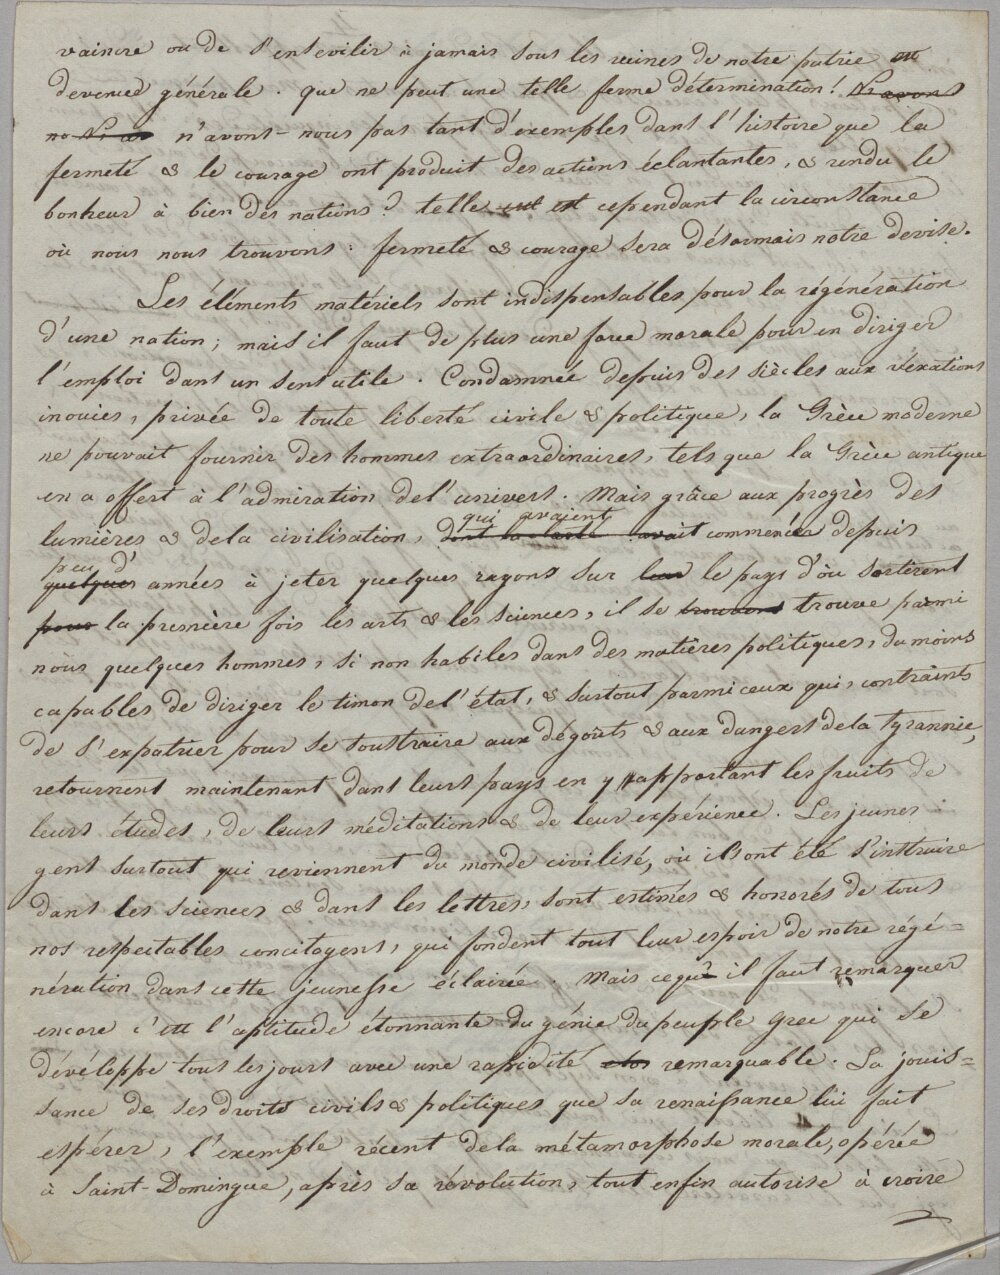 vaincre ou de s'ensevilir à jamais sous les ruines de notre patrie est
devenue générale. que ne peut une telle ferme détermination! N'avons
no N'av n'avons-nous pas tant d'exemples dans l'histoire que la
fermeté & le courage ont produit des actions éclantantes, & rendu le
bonheur à bien des nations? telle est cependant la circonstance
où nous nous trouvons: fermeté & courage sera désormais notre devise.
Les éléments matériels sont indispensables pour la régénération
d'une nation; mais il faut de plus une force morale pour en diriger
l'emploi dans un sens utile. Condamnée depuis des siècles aux véxations
inouies, privée de toute liberté civile & politique, la Grèce moderne
ne pouvait fournir des hommes extraordinaires, tels que la Grèce antique
en a offert à l'admiration de l'univers. Mais grâce aux progrès des
qui avaient
lumières & de la civilisation, dont la clarté avait commencéa depuis
peu d'
quelques années à jeter quelques rayons sur leur le pays d'où sortirent
pour la première fois les arts & les sciences, il se trouvent trouve parmi
nous quelques hommes, si non habiles dans des matières politiques, du moins
capables de diriger le timon de l'état, & surtout parmi ceux qui, contraints
de s'expatrier pour se soustraire aux dégoûts & aux dangers de la tyrannie,
retournent maintenant dans leurs pays en y rapportant les fruits de
leurs études, de leurs méditations & de leur expérience. Les jeunes
gens surtout qui reviennent du monde civilisé, où ils ont été s'instruire
dans les sciences & dans les lettres, sont estimés & honorés de tous
nos respectables concitoyens, qui fondent tout leur espoir de notre régé=
nération dans cette jeunesse éclairée. Mais ce qu' il faut remarquer
encore c'est l'aptitude étonnante du génie du peuple grec qui se
dévéloppe tous les jours avec une rapidité remarquable. La jouis=
sance de ses droits civils & politiques que sa renaissance lui fait
espérer, l'exemple récent de la métamorphose morale, opérée
à Saint-Domingue, après sa révolution, tout enfin autorise à croire